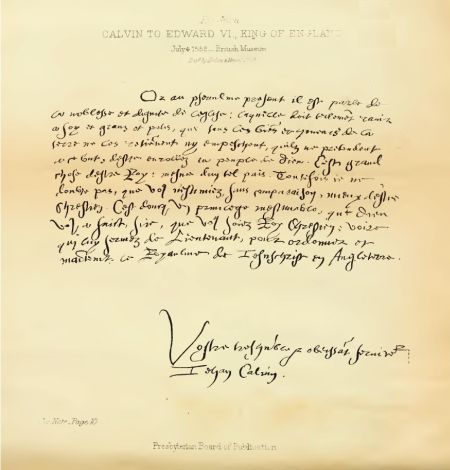 CALVIN TO EDWARD VI., KING OF ENGLAND
July 4 1552._ British Museum
Or au pseaulme present il est parle de
la noblesse et dignite de leglise: laquelle doit tellemēt ravir
a soy et grans et petis, que tous les biēs et honeurs de la
terre ne les retiennent ny empeschent, quilz ne pretendent
a ce but, destre enrollez au peuple de Dieu. Cest grand
chose destre Roy: mesme dung tel pais. Toutesfois ie ne
doubte pas, que vous nestimiez sans comparaison mieux destre
Chrestien. Cest doncq un privilege inestimable, que Dieu
vous a faict, Sire, que vous soiez Roy Chrestien: voire
qui luy servez de Lieutenant, pour ordonner et
maitenir le Royaulme de Iesuschrist en Angleterre.
Vostre treshumble & obeissāt serviteur
Iehan Calvin.
Page 10
Presbyterian Board of Publication